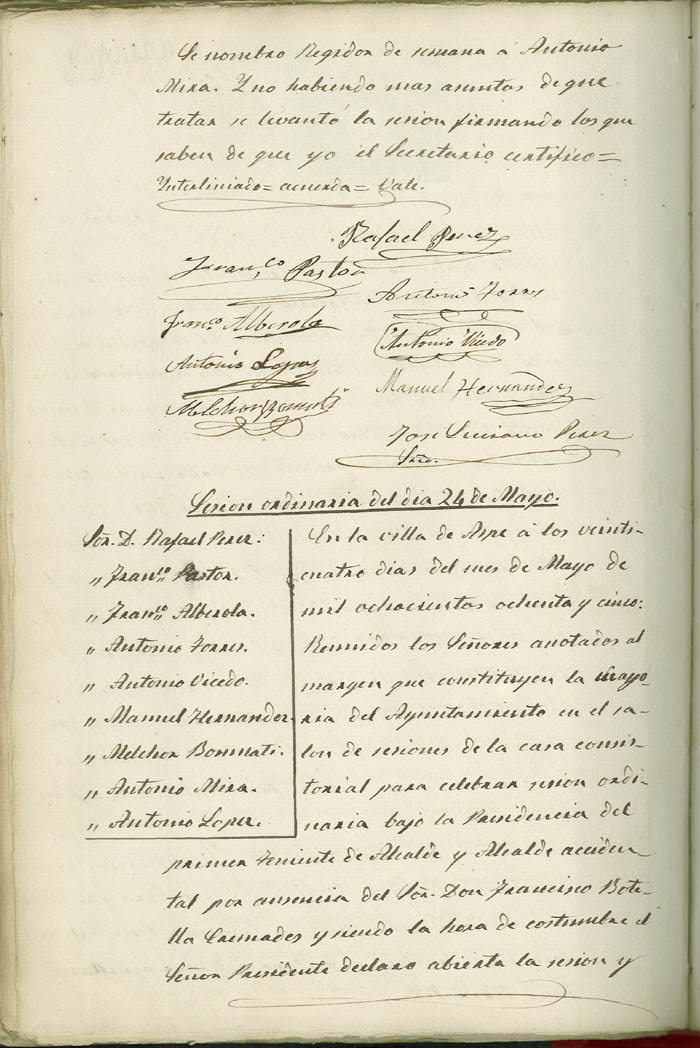 Se nombro Regidor de semana á Antonio
Mira. Y no habiendo mas asuntos de que
tratar se levantó la sesion firmando los que
saben de que yo el Secretario certifico=
Interliniado=acuerda=Vale.
Rafael Perez
Fran,co Pastor
Antonio Torres
Franco. Alberola
Antonio Vicedo
Antonio Lopez
Manuel Hernandez
Melchor Bonmati
José Perez
Srio.
Sesion ordinaria del dia 24 de Mayo.
Sor. D. Rafael Perez.
„ Franco Pastor.
„ Franco Alberola.
„ Antonio Torres.
„ Antonio Vicedo.
„ Manuel Hernandez.
„ Melchor Bonmati.
„ Antonio Mira.
„ Antonio Lopez.
En la villa de Aspe á los veinti-
cuatro dias del mes de Mayo de
mil ochocientos ochenta y cinco:
Reunidos los Señores anotados al
margen que constituyen la mayo-
ria del Ayuntamiento en el sa-
lon de sesiones de la casa consis-
torial para celebrar sesion ordi-
naria bajo la Presidencia del
primer Teniente de Alcalde y Alcalde acciden
tal por ausencia del Sor. Don Francisco Bote-
lla Cremades y siendo la hora de costumbre el
Señor Presidente declaro abierta la sesion y